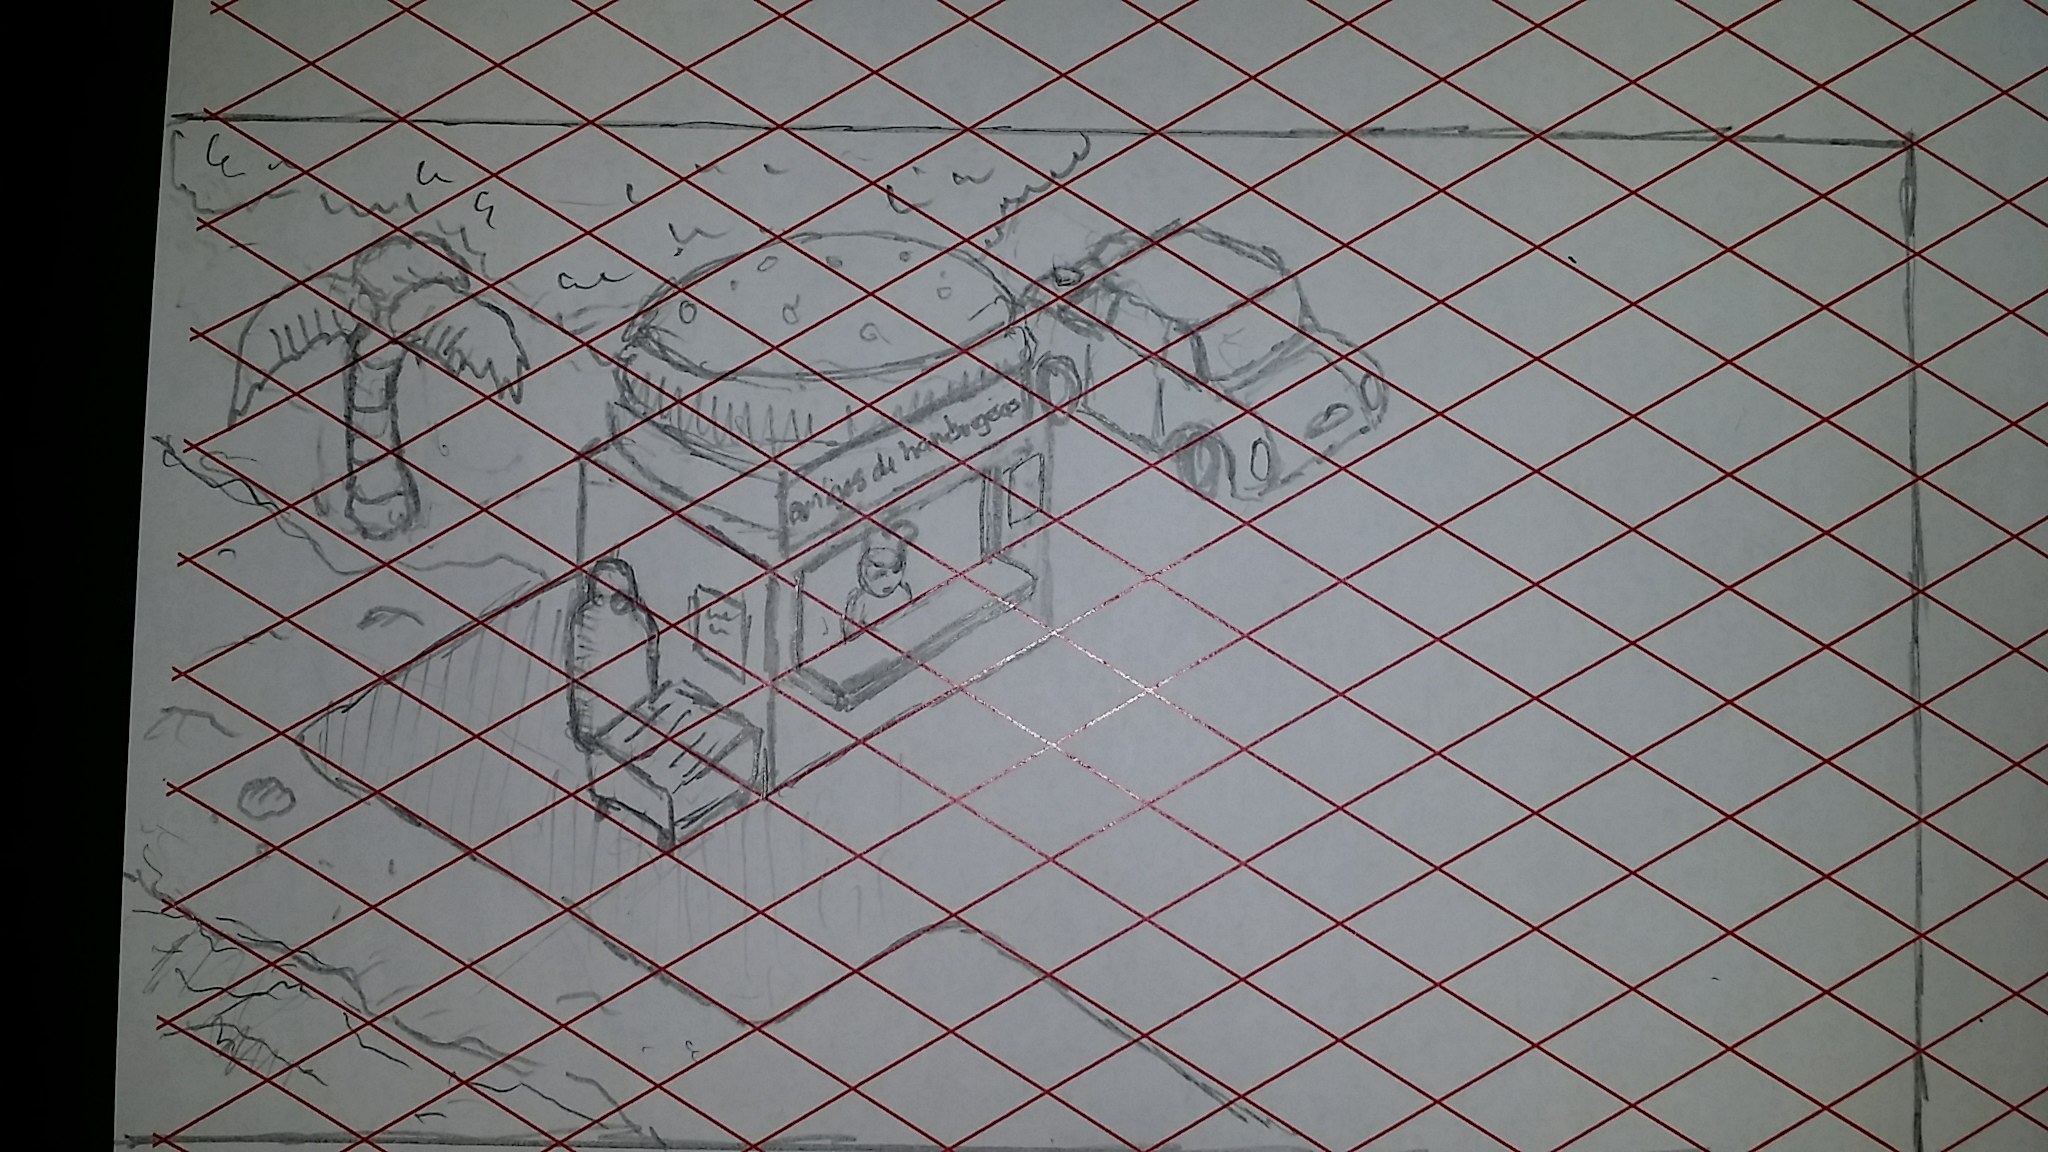 amigos de hamburgesas